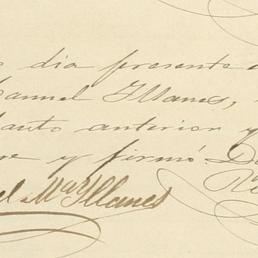 dia presente
Manuel Yllanes,
auto anterior y
y firmó
Ma Yllanes